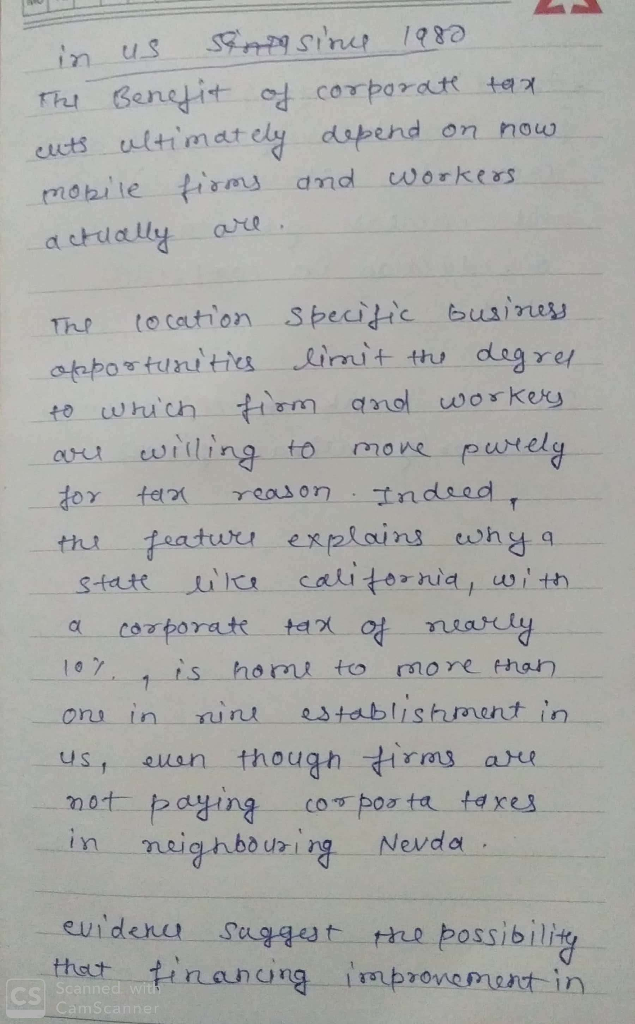 in US since 1980
The Benefit of corporate tax
cuts ultimately depend on how
mobile firms and workers
actually are.
The location specific business
opportunities limit the degree
to which firm and workers
are willing to move purely
for tax reason. Indeed,
the feature explains why a
state like california, with
a corporate tax of nearly
10%, is home to more than
one in nine establishment in
US, even though firms are
not paying corporta taxes
in neighbouring Nevda.
evidence suggest the possibility
that financing improvement in
CS Scanned with
CamScanner